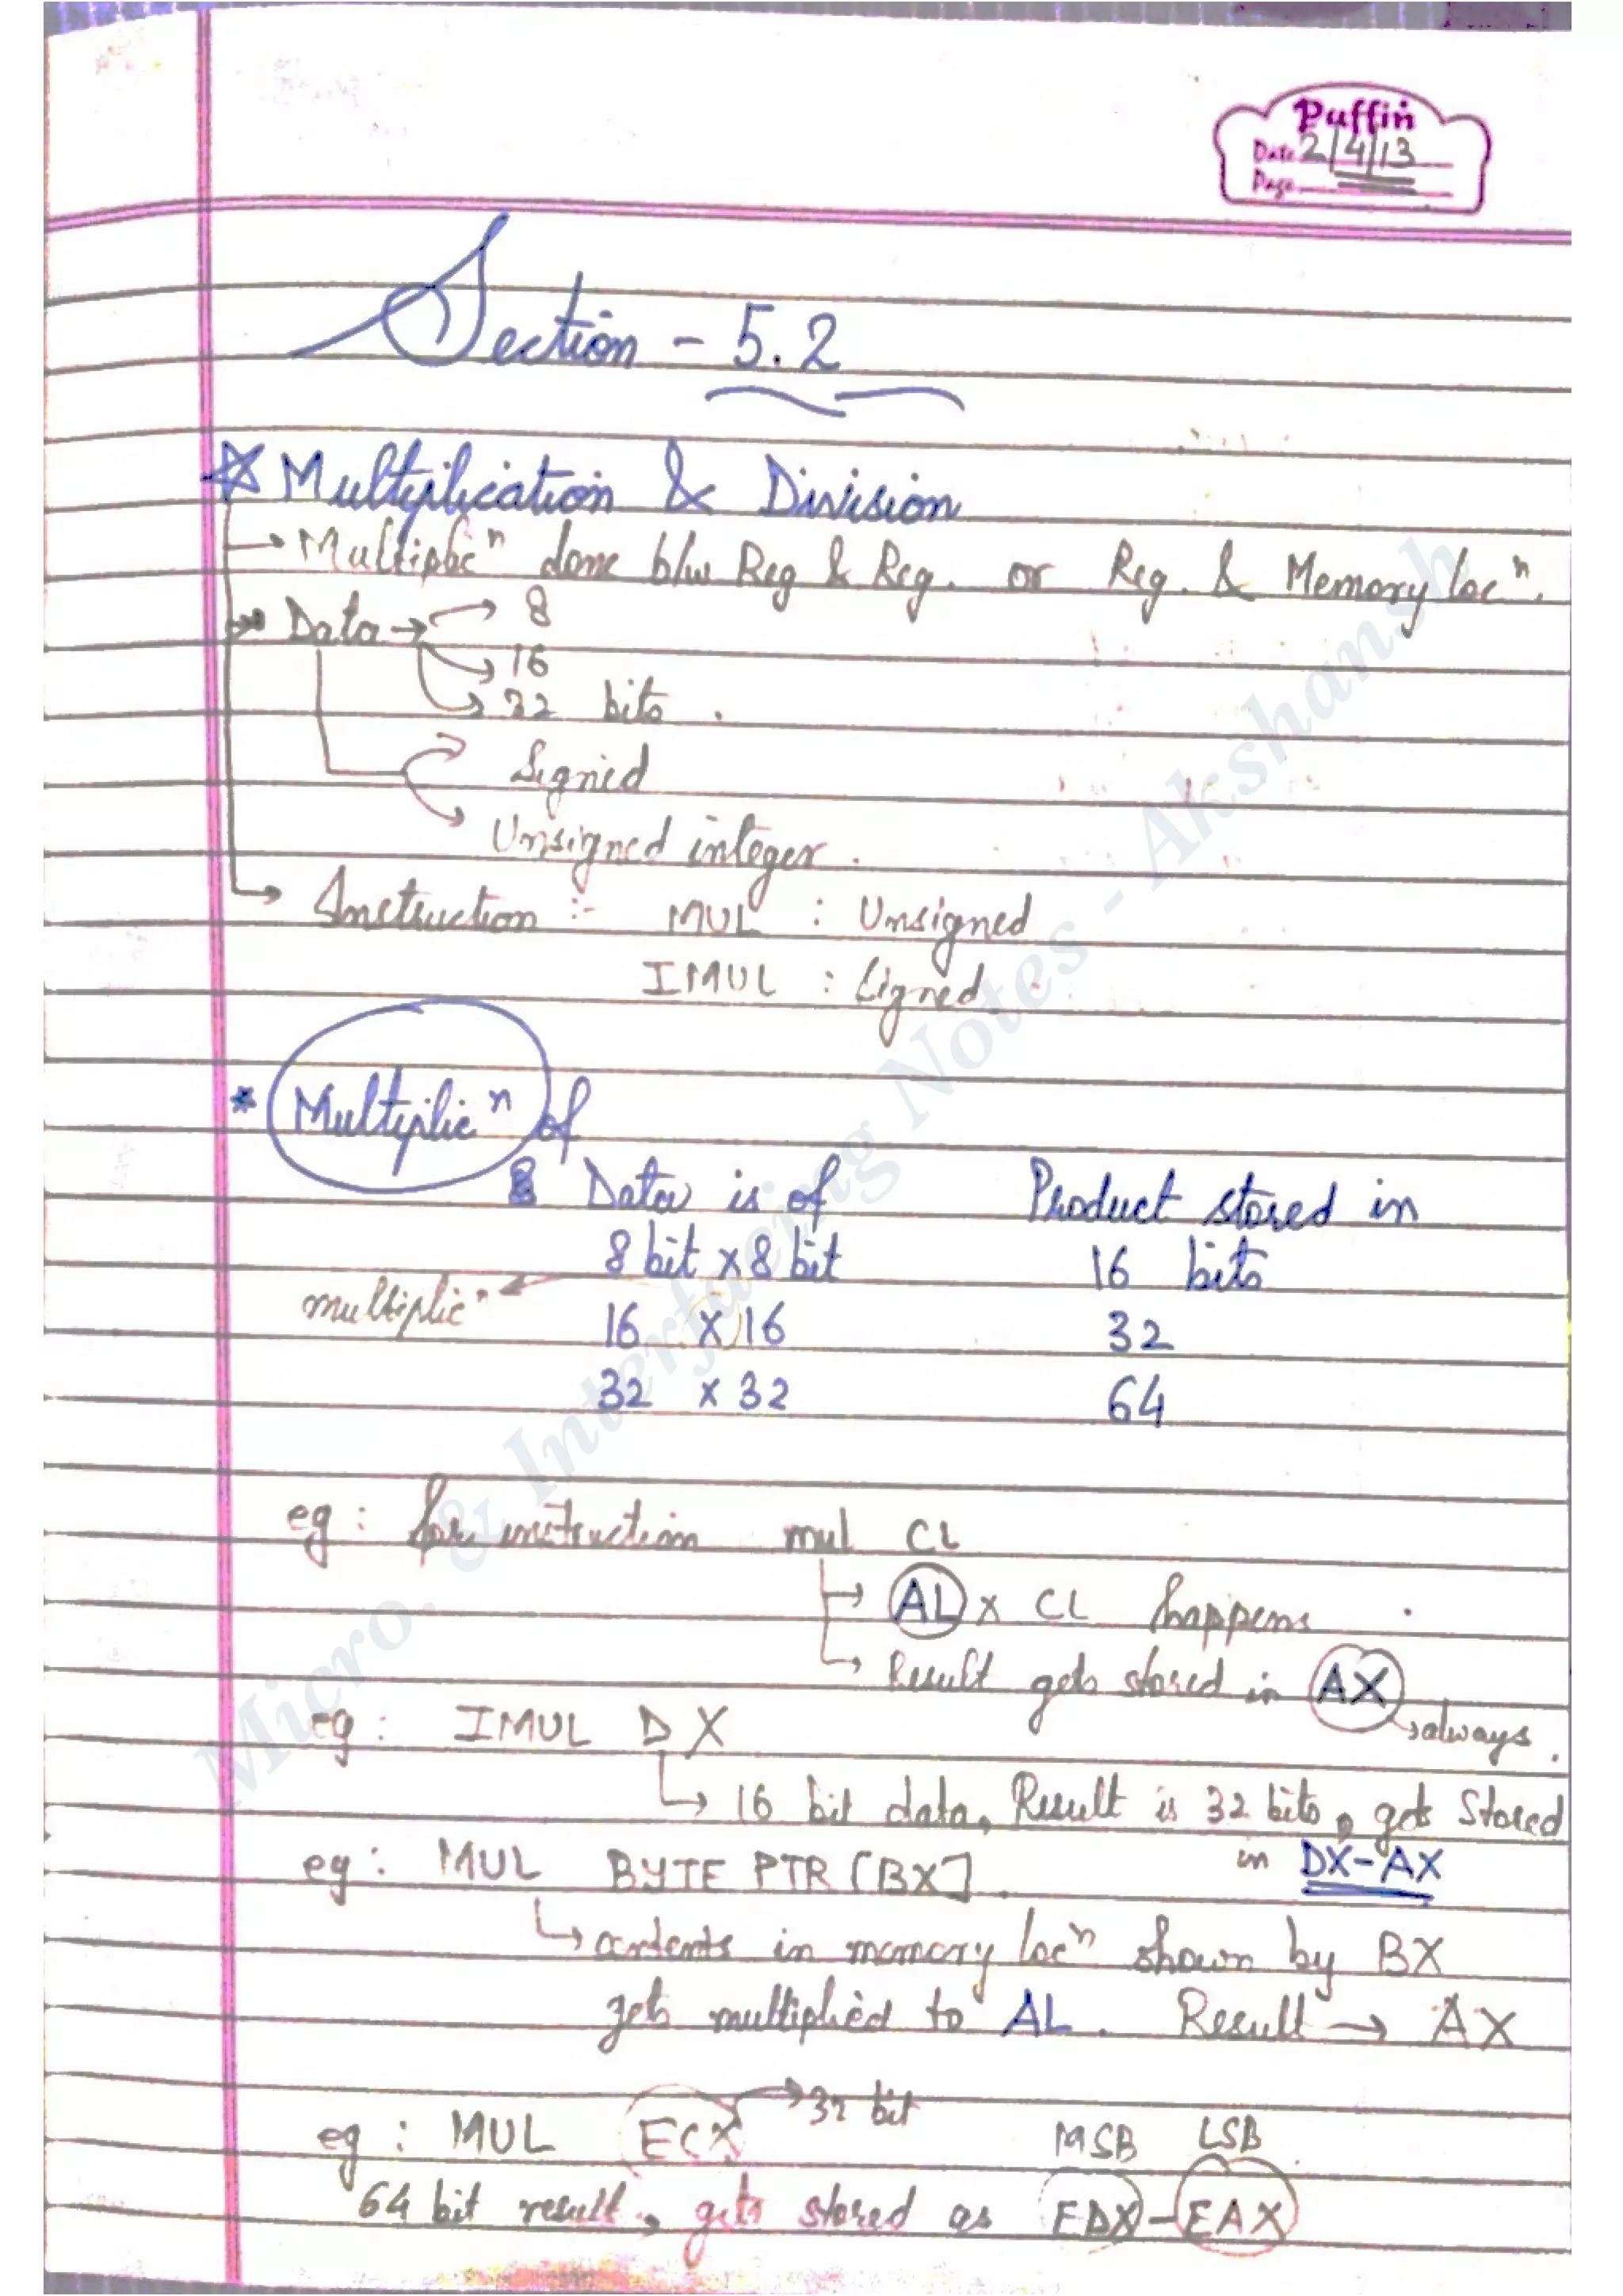 Puffin
Date 2/4/13
Page
Section - 5.2
Multiplication & Division
→ Multiplicⁿ done b/w Reg & Reg. or Reg. & Memory locⁿ.
→ Data → 8
→ 16
→ 32 bits.
Signed
Unsigned integer.
→ Instruction :- MUL : Unsigned
IMUL : Signed
* Multiplicⁿ of
Data is of Product stored in
8 bit x 8 bit 16 bits
multiplicⁿ
16 x 16 32
32 x 32 64
eg : for instruction mul CL
→ AL x CL happens.
→ Result gets stored in AX
→ always.
eg : IMUL DX
→ 16 bit data, Result is 32 bits, gets Stored
in DX-AX
eg : MUL BYTE PTR [BX].
→ contents in memory locⁿ shown by BX
gets multiplied to AL. Result → AX
eg : MUL ECX → 32 bit MSB LSB
64 bit result, gets stored as EDX-EAX
Micro. & Interfacing Notes - Akshansh